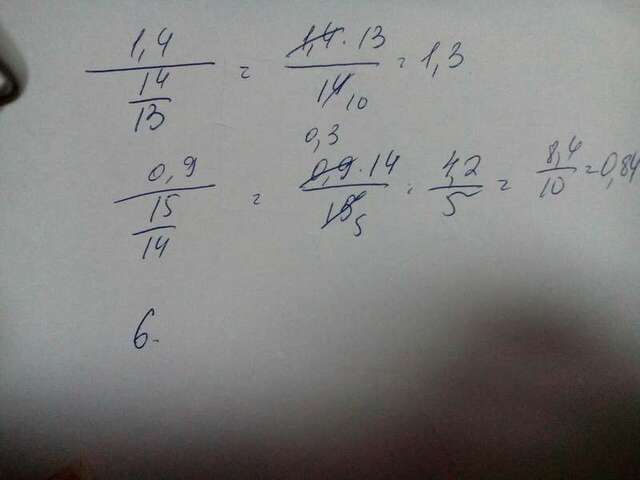 1,4 / (14/13) = 1,4 · 13 / 14 10 = 1,3
0,9 / (15/14) = 0,3 0,9 · 14 / 15 5 = 4,2 / 5 = 8,4 / 10 = 0,84
6.